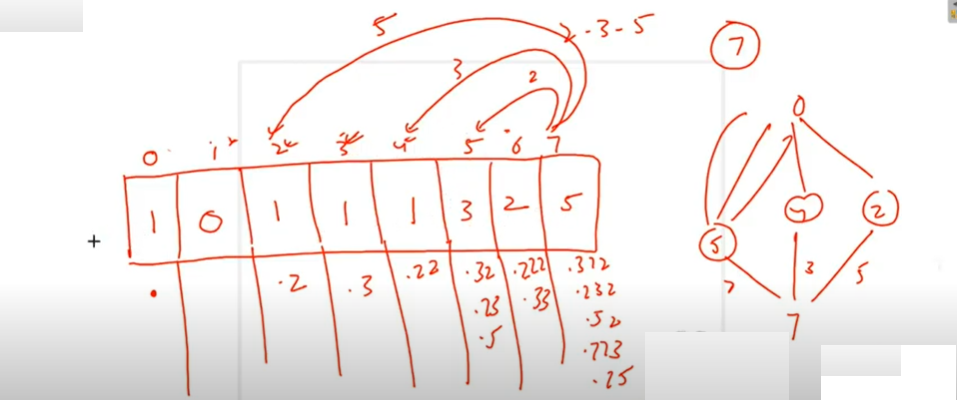 5 2-3-5 7
3 2
0 1 2 3 4 5 6 7
1 0 1 1 1 3 2 5
. .2 .3 .22 .32 .222 .322
.23 .33 .232
.5 .52
.223
.25
+
0
5 4 2
2 3 5
7